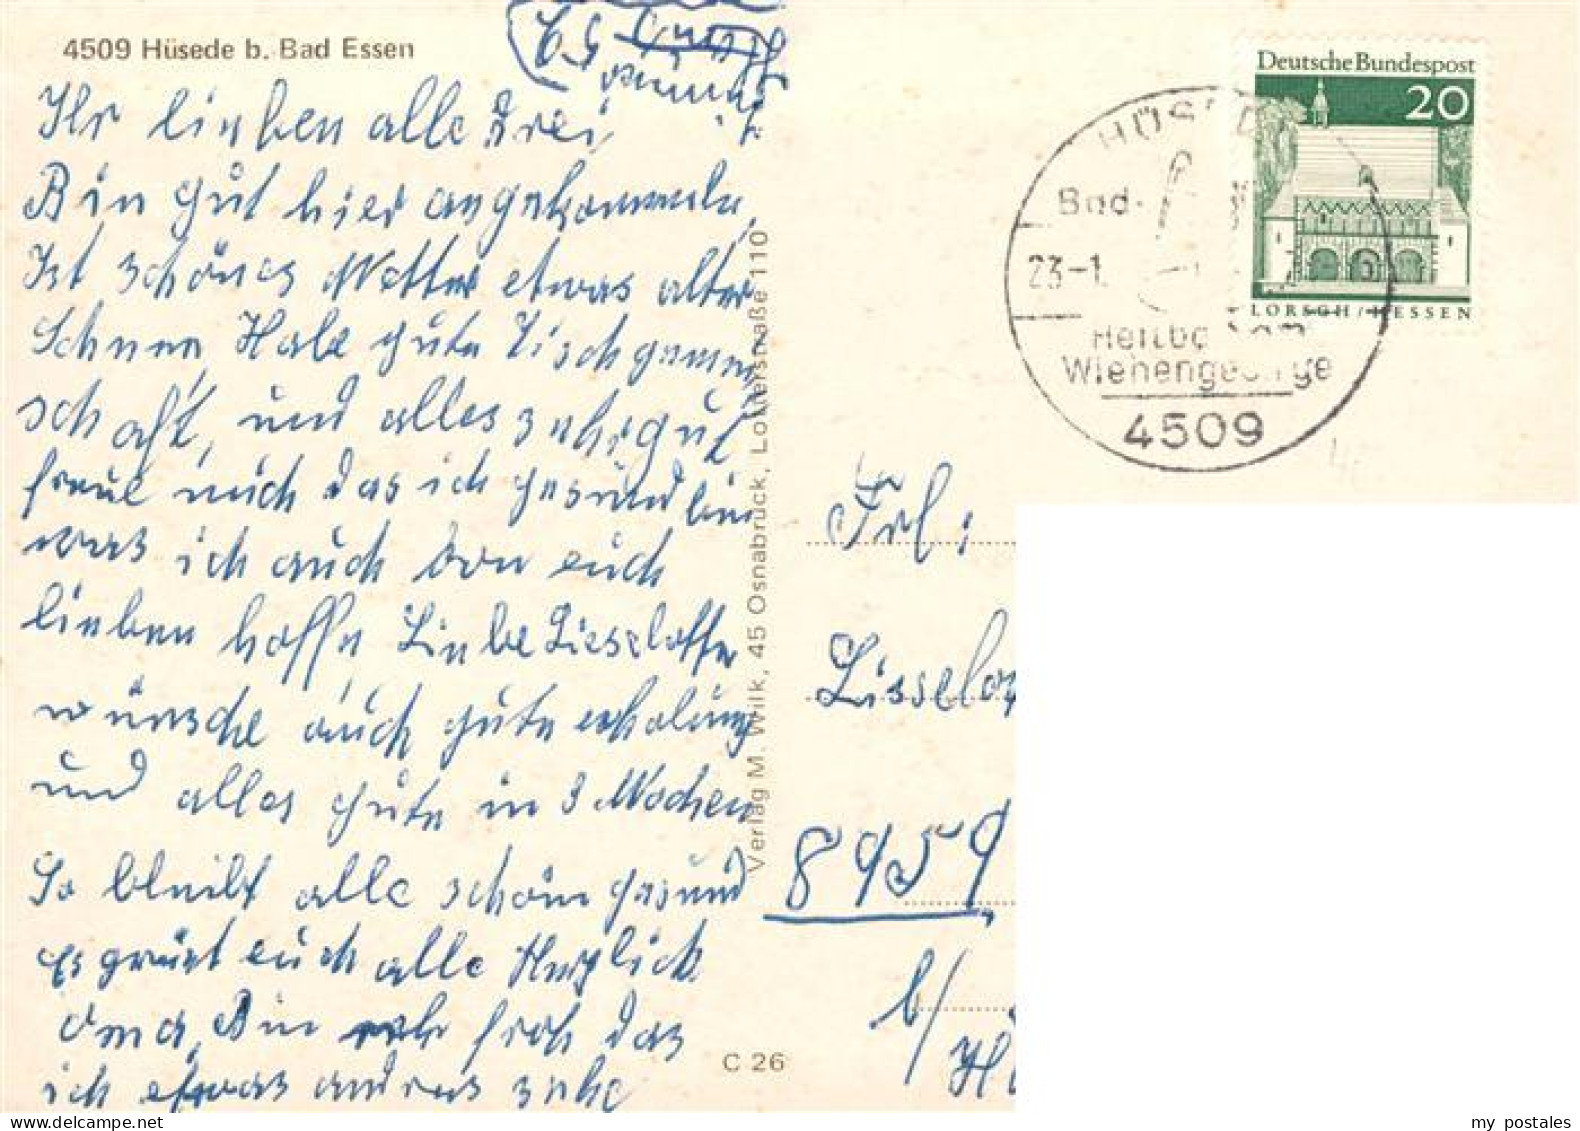 4509 Hüsede b. Bad Essen
Ihr lieben alle drei,
Bin gut hier angekommen,
Ist schönes Wetter etwas alter
Schnee, Habe gute Tischgemein
schaft, und alles sehr gut
freue mich das ich gesund bin
was ich auch von euch
lieben hoffe, Liebe Lieselotte
wünsche auch gute erholung
und alles gute in 3 Wochen
So bleibt alle schön gesund
Es grüst euch alle Herzlich
Oma, Bin sehr froh das
ich etwas andres sehe
Verlag M. Wilk, 45 Osnabrück, Lotterstraße 110
C 26
Deutsche Bundespost
20
LORSCH / HESSEN
HÜS
Bad-
23-1.
Wiehengebirge
4509
Frl:
Lisselo
8959
b/
H
my postales